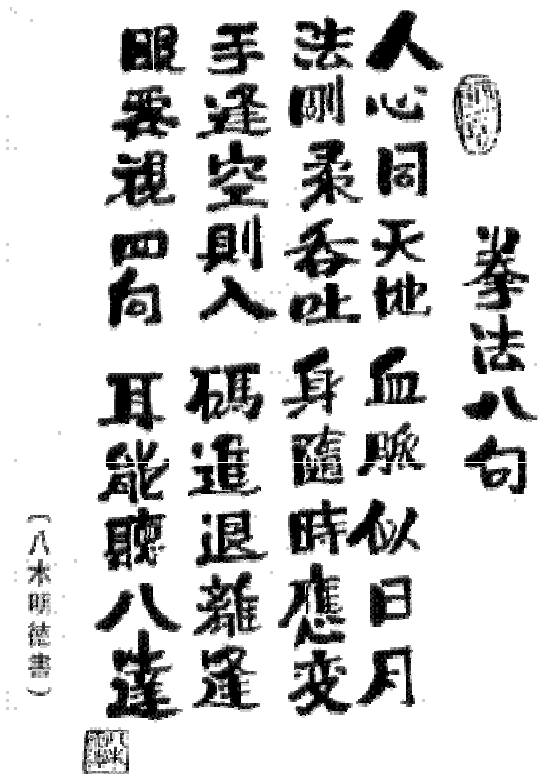 拳法八句
人心同天地 血脈似日月
法剛柔呑吐 身隨時應変
手逢空則入 碼進退離逢
眼要視四向 耳能聽八達
（八木明徳書）